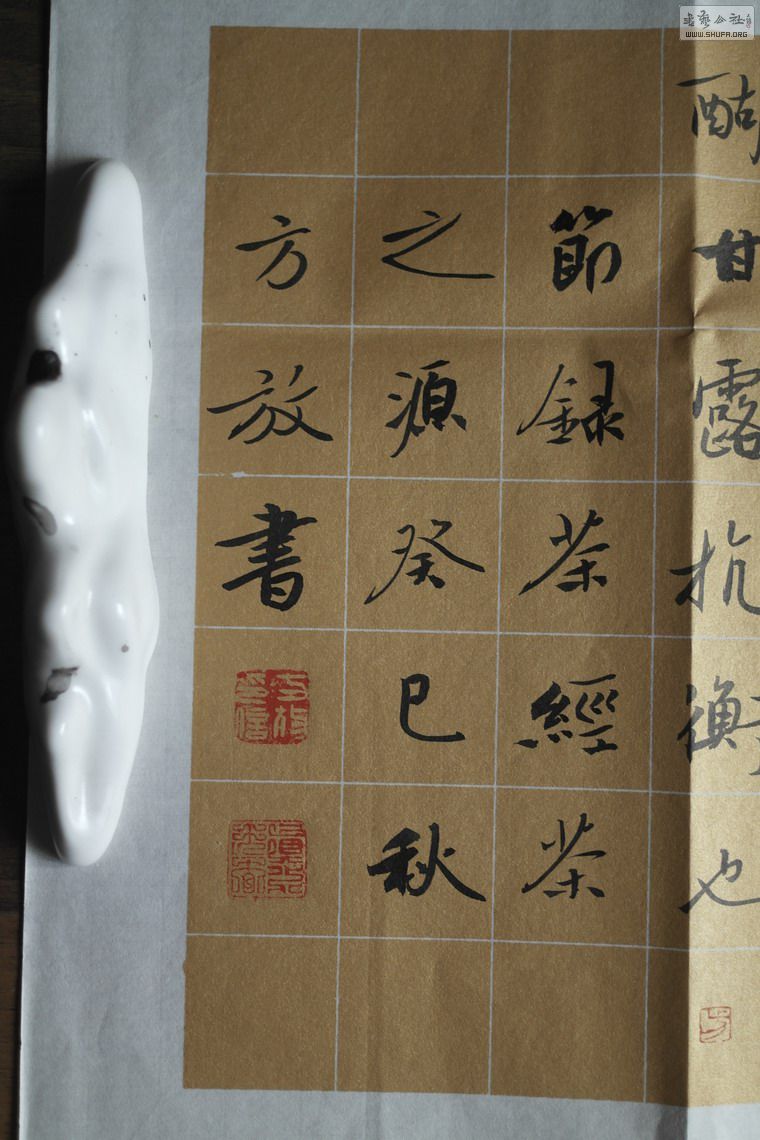 醐甘露抗衡也
節録茶經茶
之源癸巳秋
方放書
書藝公社
WWW.SHUFA.ORG